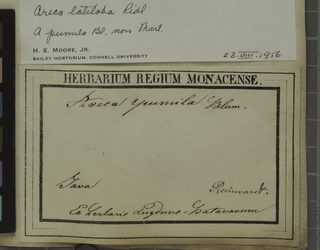 Areca latiloba Ridl
A pumila Bl. non Mart.
H. E. MOORE, JR.
BAILEY HORTORIUM, CORNELL UNIVERSITY
23.VIII.1956
HERBARIUM REGIUM MONACENSE.
Areca pumila Blum.
Java
Reinwardt.
Ex herbario Lugduno-batavorum